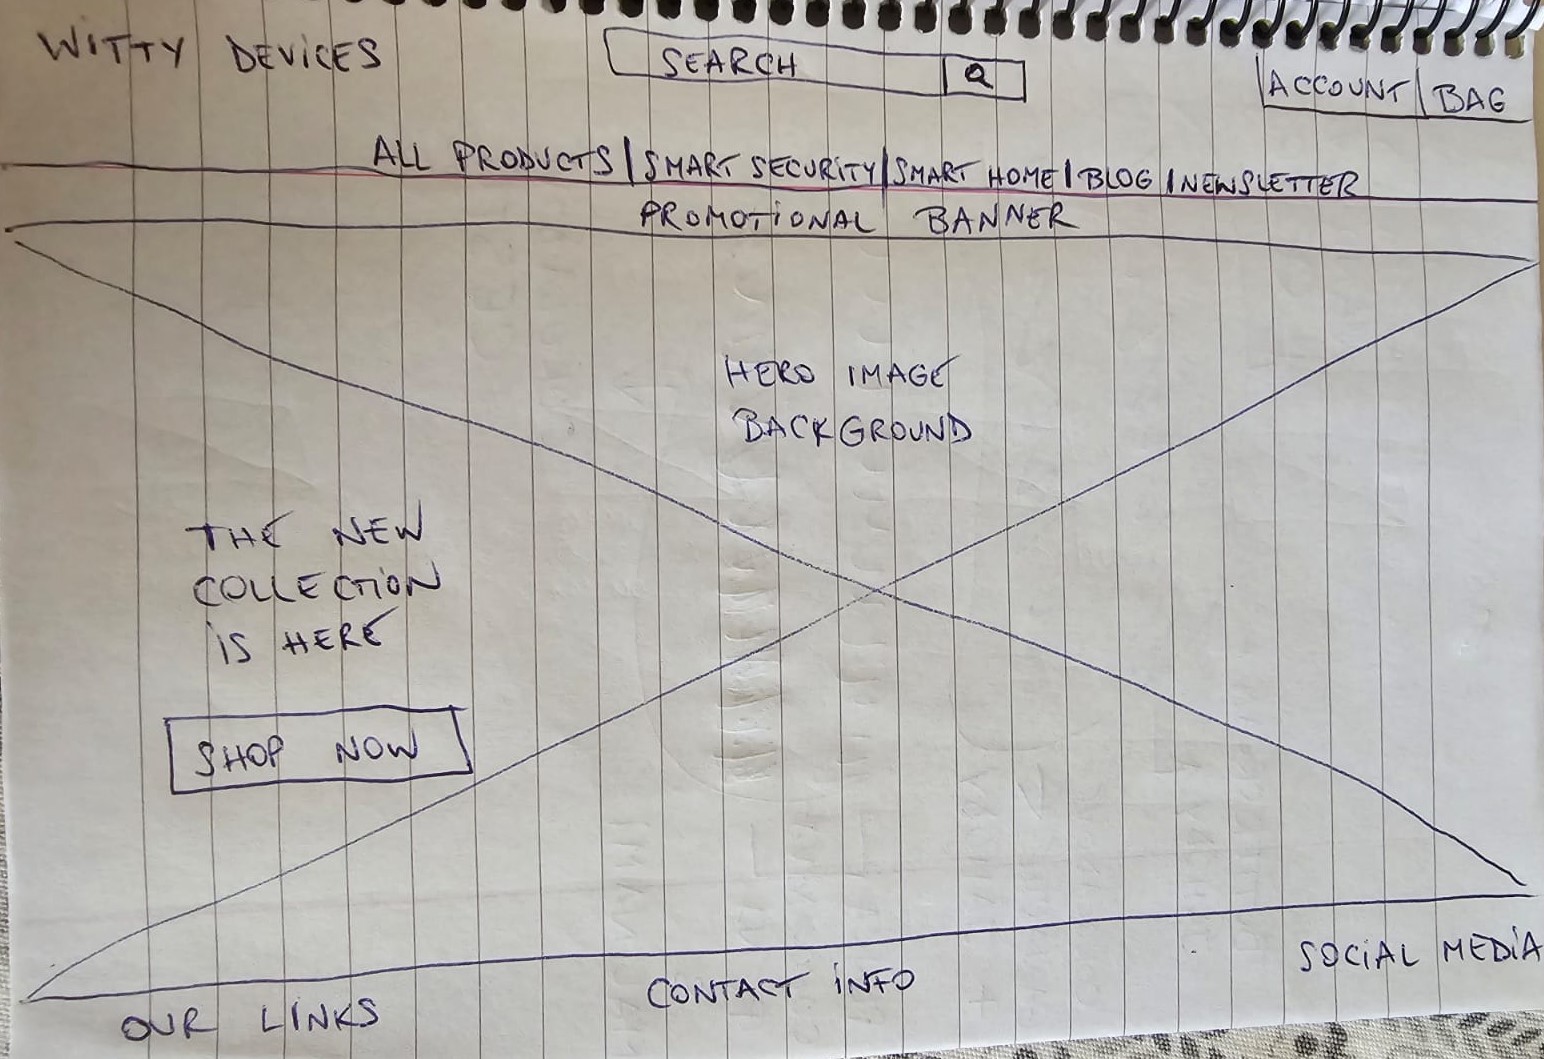 WITTY DEVICES
SEARCH
ACCOUNT | BAG
ALL PRODUCTS | SMART SECURITY | SMART HOME | BLOG | NEWSLETTER
PROMOTIONAL BANNER
HERO IMAGE
BACKGROUND
THE NEW
COLLECTION
IS HERE
SHOP NOW
OUR LINKS
CONTACT INFO
SOCIAL MEDIA